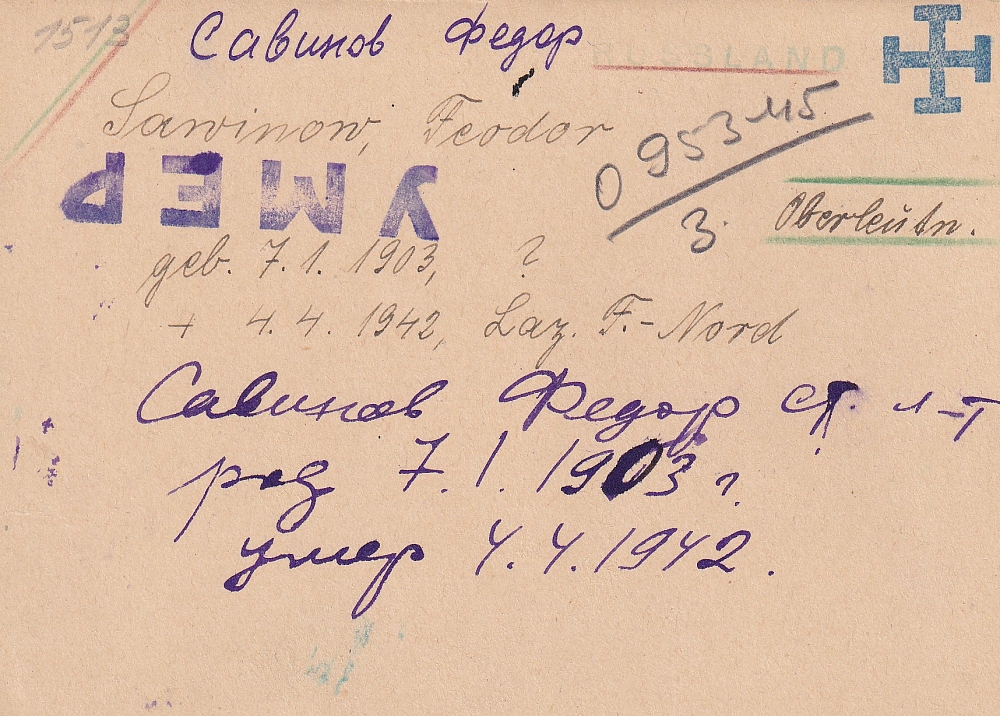 1513
Савинов Федор
RUSSLAND
Sawinow, Feodor
0 953 м5
3.
УМЕР
Oberleutn.
geb. 7.1. 1903, ?
+ 4. 4. 1942, Laz. F.-Nord
Савинов Федор ст. л-т
род 7.1.1903 г.
умер 4.4.1942.